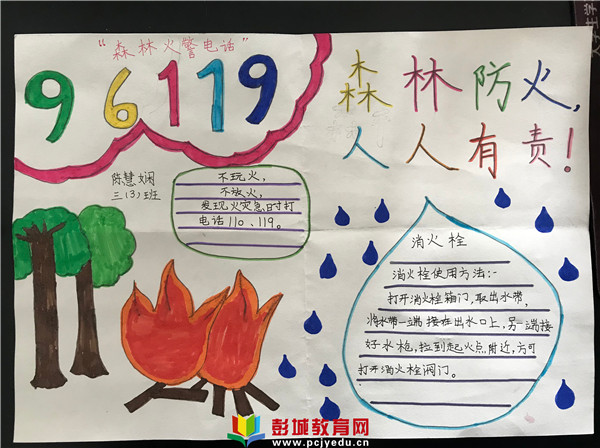 “森林火警电话”
96119
森林防火,
人人有责!
陈慧娴
三(3)班
不玩火,
不放火,
发现火灾急时打
电话110、119。
消火栓
消火栓使用方法:-
打开消火栓箱门,取出水带,
将水带一端接在出水口上,另一端接
好水枪,拉到起火点附近,方可
打开消火栓阀门。
彭城教育网
www.pcjyedu.cn